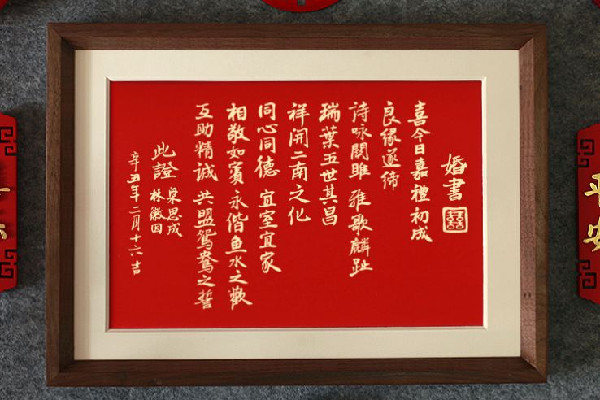 婚書
囍
喜今日嘉禮初成
良缘遂缔
诗咏關雎 雅歌麟趾
瑞葉五世其昌
祥開二南之化
同心同德 宜室宜家
相敬如賓 永偕鱼水之歡
互助精诚 共盟鴛鴦之誓
此證
梁思成
林徽因
辛丑年二月十六吉
平安